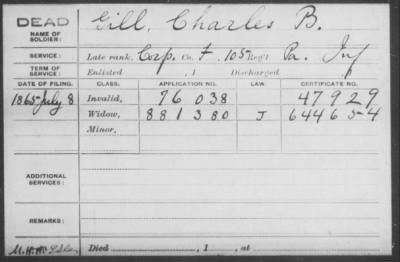 DEAD Gill, Charles B.
NAME OF SOLDIER:
SERVICE: Late rank, Corp. Co. F, 105 Reg't Pa. Inf
TERM OF SERVICE: Enlisted , 1 Discharged , 1
DATE OF FILING. CLASS. APPLICATION NO. LAW. CERTIFICATE NO.
1865 July 8 Invalid, 76 038 47929
Widow, 881380 J 644654
Minor,
ADDITIONAL SERVICES:
REMARKS:
Died , 1 , at